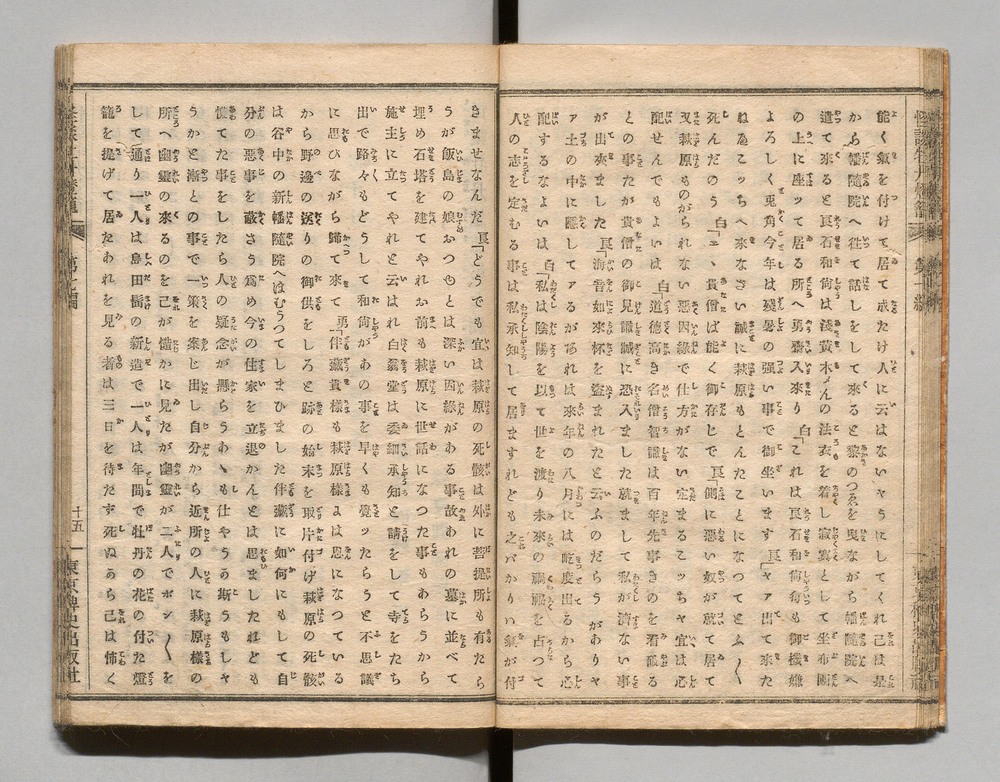 能く氣を付けて居て成たけ人に云はないやうにしてくれ己は是
から幡隨院へ往て話しをして來ると藜のつゑを曳ながら幡隨院へ
遣て來ると良石和尚は淺黄木めんの法衣を着し寂寞として坐布團
の上に座ッて居る所へ勇齋入來り白「これは良石和尚何も御機嫌
よろしく兎角今年は殘暑の强い事で御坐います良「ヤア出て來た
ねゑこッちへ來なさい誠に萩原もとんたことになつてとふ〳〵
死んだのう白「エヽ貴僧ば能く御存じで良「側に惡い奴が就て居て
又萩原ものがられない惡因緣で仕方がない定まるこッちや宜いはへ心
配せんでもよいは白「道德高き名僧智識は百年先事きのを看破る
との事だが貴僧の御見識誠に恐入ました就まして私が濟ない事
が出來ました良「海音如來杯を盜まれたと云ふのだらうがありや
ァ土の中に隱してァるがあれは來年の八月には屹度出るから心
配するなよいは白「私しは陰陽を以て世を渡り未來の禍福を占つて
人の志を定むる事は私承知して居ますれども之バかりは氣が付
きませなんだ良「どうでも宜は萩原の死骸は外に菩提所も有たら
うが飯島の娘おつゆとは深い因緣がある事故あれの墓に並べて
埋め石塔を建てやれお前も萩原に世話になつた事もあらうから
施主に立てやれと云はれ白翁堂は委細承知と請をして寺をたち
出で路々もどうして和尚があの事を早くも覺ッたらうと不思議
に思ひながら歸て來て勇「伴藏貴樣も萩原樣ょは思になつている
から野邊の送りの御供をしろと跡の始末を取片付け萩原の死骸
は谷中の新幡隨院へはむうつてしまひました伴藏は如何にもして自
分の惡事を蔽さう爲め今の住家を立退かんとは思ましたれども
慌てた事をしたら人の疑念が懸らうあゝも仕やうか斯うもしや
うかと漸との事で一策を案じ出し自分から近所の人に萩原樣の
所へ幽靈の來るのを己が慥かに見たが幽靈が二人でボン〳〵を
して通り一人は島田髷の新造で一人は年間で牡丹の花の付た燈
籠を提げて居たあれを見る者は三日を待たず死ぬから己は怖く
十五
東京稗史出版社